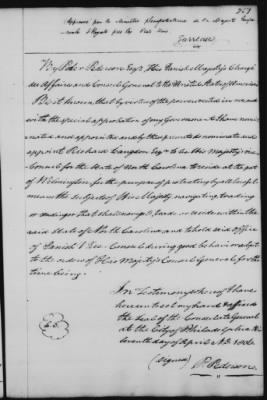 351
Approuvé par le Ministre Plenipotentiaire de Sa Majesté
Royale pres les Etats Unis
By Peder Pederson Esqr. His Danish Majesty's Chargé
des Affaires and Consul General to the United States of America
Be it known that by virtue of the power vested in me and
with the special approbation of my Government I have nomi-
nated and appointed and by these presents do nominate and
appoint Richard Langdon Esqr. to be His Majesty's vice
Consul for the State of North Carolina to reside at the port
of Wilmington for the purpose of protecting by all lawful
means the subjects of His Majesty navigating trading
or making or that shall navigate, trade or reside within the
said State of North Carolina and to hold said office
of Danish Vice Consul during good behavior subject
to the orders of His Majesty's Consul General for the
time being.
In Testimony whereof I have
hereunto set my hand & affixed
the Seal of the Consulate General
at the City of Philadelphia this
eleventh day of April A.D. 1806
(Signed)
P. Pederson
L.S.